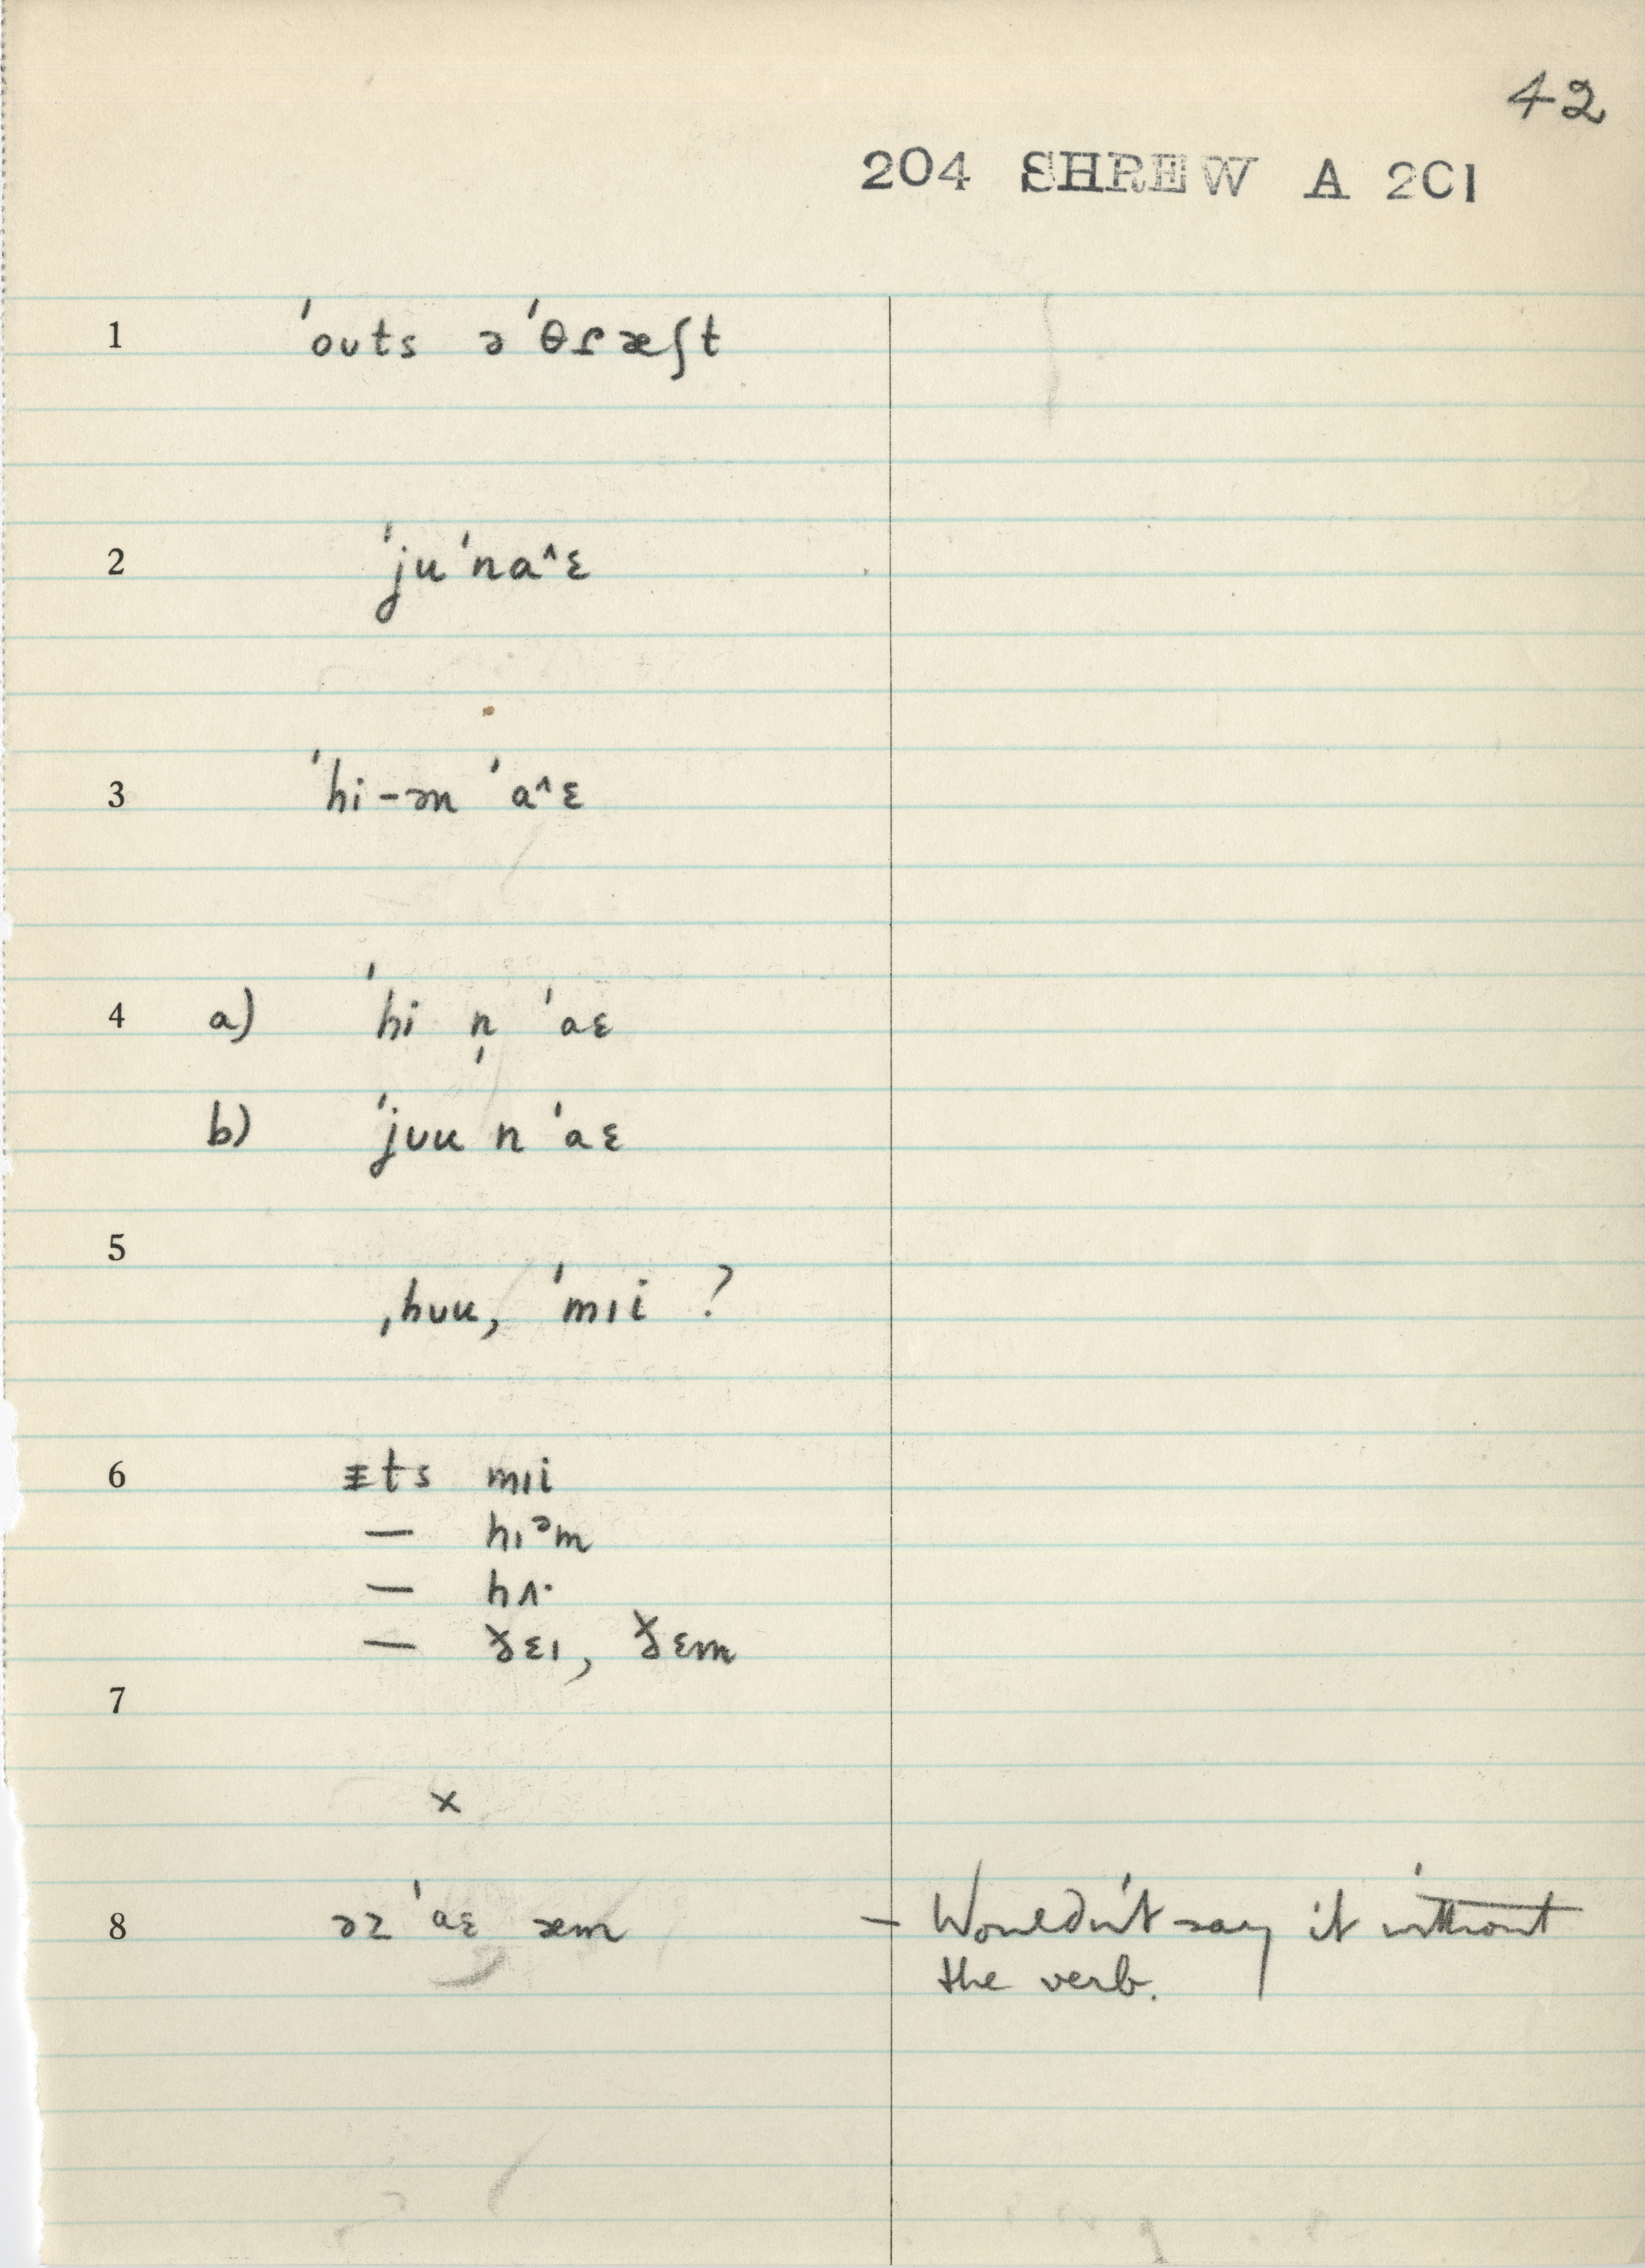 42
204 SHREW A 201
1 ˈoʊts əˈθɾæʃt
2 ˈjuˈna^ɛ
3 ˈhi-ən ˈa^ɛ
4 a) ˈhi n̩ ˈaɛ
b) ˈjʊu n ˈaɛ
5
ˌhʊu, ˈmɪi ?
6 ᵻts mɪi
— hɪᵊm
— hʌ·
— ɛɪ, ɛm
7
×
8 əz ˈaɛ æm – Wouldn't say it without
the verb.